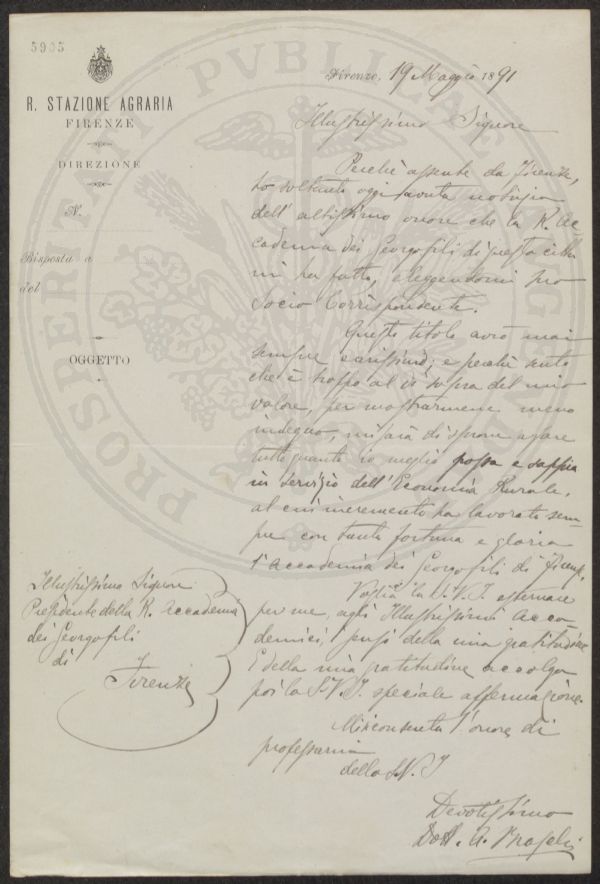 5905
R. STAZIONE AGRARIA
FIRENZE
DIREZIONE
N.
Risposta a
del
OGGETTO
PROSPERITATI PVBLICAE AVGENDAE
Firenze, 19 Maggio 1891
Illustrissimo Signore
Perchè assente da Firenze,
ho soltanto oggi avuta notizia
dell'altissimo onore che la R. Ac-
cademia dei Georgofili di questa città
mi ha fatto, eleggendomi suo
Socio Corrispondente.
Questo titolo avrò mai
sempre carissimo; e perchè sento
che è troppo al di sopra del mio
valore, per mostrarmene meno
indegno, mi sarà di sprone a fare
tutto quanto io meglio possa e sappia
in servizio dell'Economia Rurale,
al cui incremento ha lavorato sem-
pre con tanta fortuna e gloria
l'Accademia dei Georgofili di Firenze.
Voglia la S.V.I. esternare
per me, agli Illustrissimi Acca-
demici, i sensi della mia gratitudine
E della mia gratitudine accolga
poi la S.V.I. speciale affermazione.
Mi consenta l'onore di
professarmi
della S.V.I
Devotissimo
Dott. A.
Illustrissimo Signore
Presidente della R. Accademia
dei Georgofili
di
Firenze